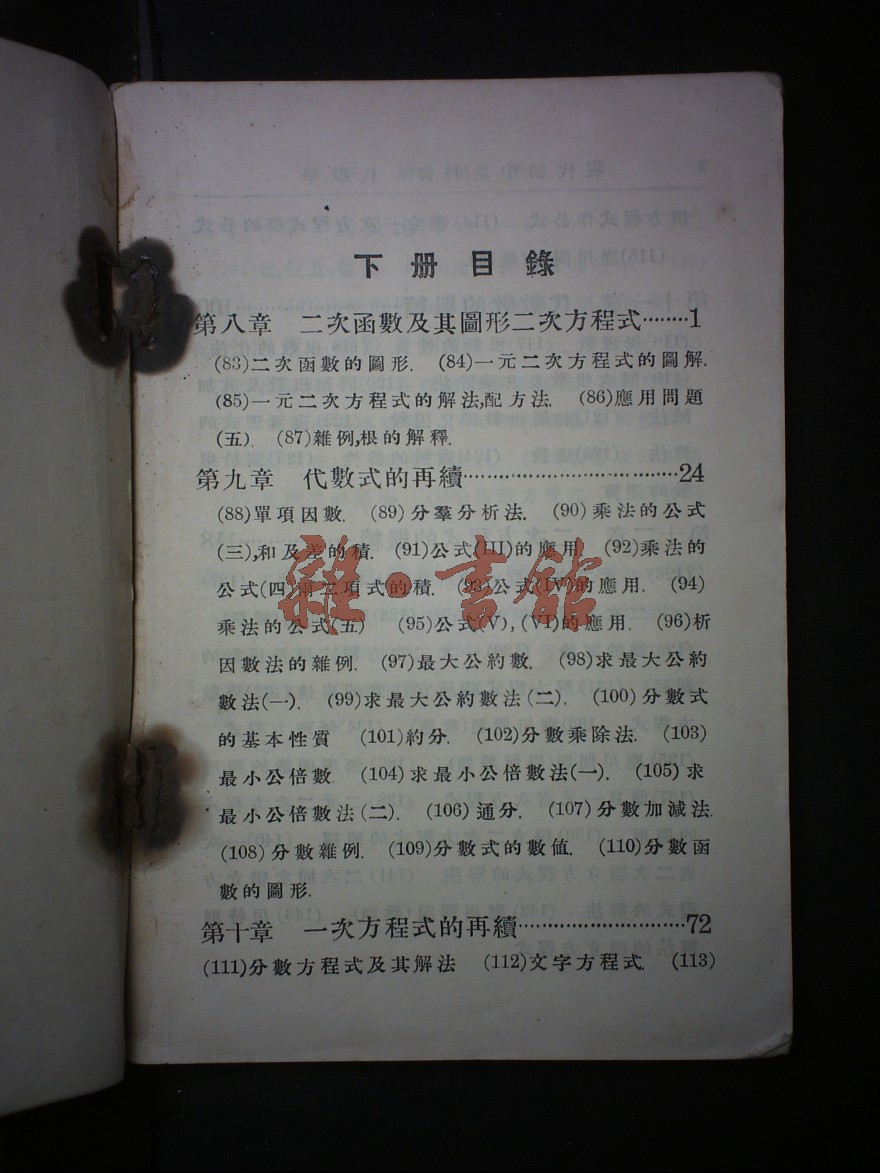 下册目錄
第八章 二次函數及其圖形二次方程式········1
(83)二次函數的圖形. (84)一元二次方程式的圖解.
(85)一元二次方程式的解法,配方法. (86)應用問題
(五). (87)雜例,根的解釋.
第九章 代數式的再續······························24
(88)單項因數. (89)分羣分析法. (90)乘法的公式
(三),和及差的積. (91)公式(III)的應用. (92)乘法的
公式(四)兩二項式的積. (93)公式(IV)的應用. (94)
乘法的公式(五) (95)公式(V),(VI)的應用. (96)析
因數法的雜例. (97)最大公約數. (98)求最大公約
數法(一). (99)求最大公約數法(二). (100)分數式
的基本性質 (101)約分. (102)分數乘除法. (103)
最小公倍數. (104)求最小公倍數法(一). (105)求
最小公倍數法(二). (106)通分. (107)分數加減法.
(108)分數雜例. (109)分數式的數值. (110)分數函
數的圖形.
第十章 一次方程式的再續························72
(111)分數方程式及其解法 (112)文字方程式. (113)
雜·書館